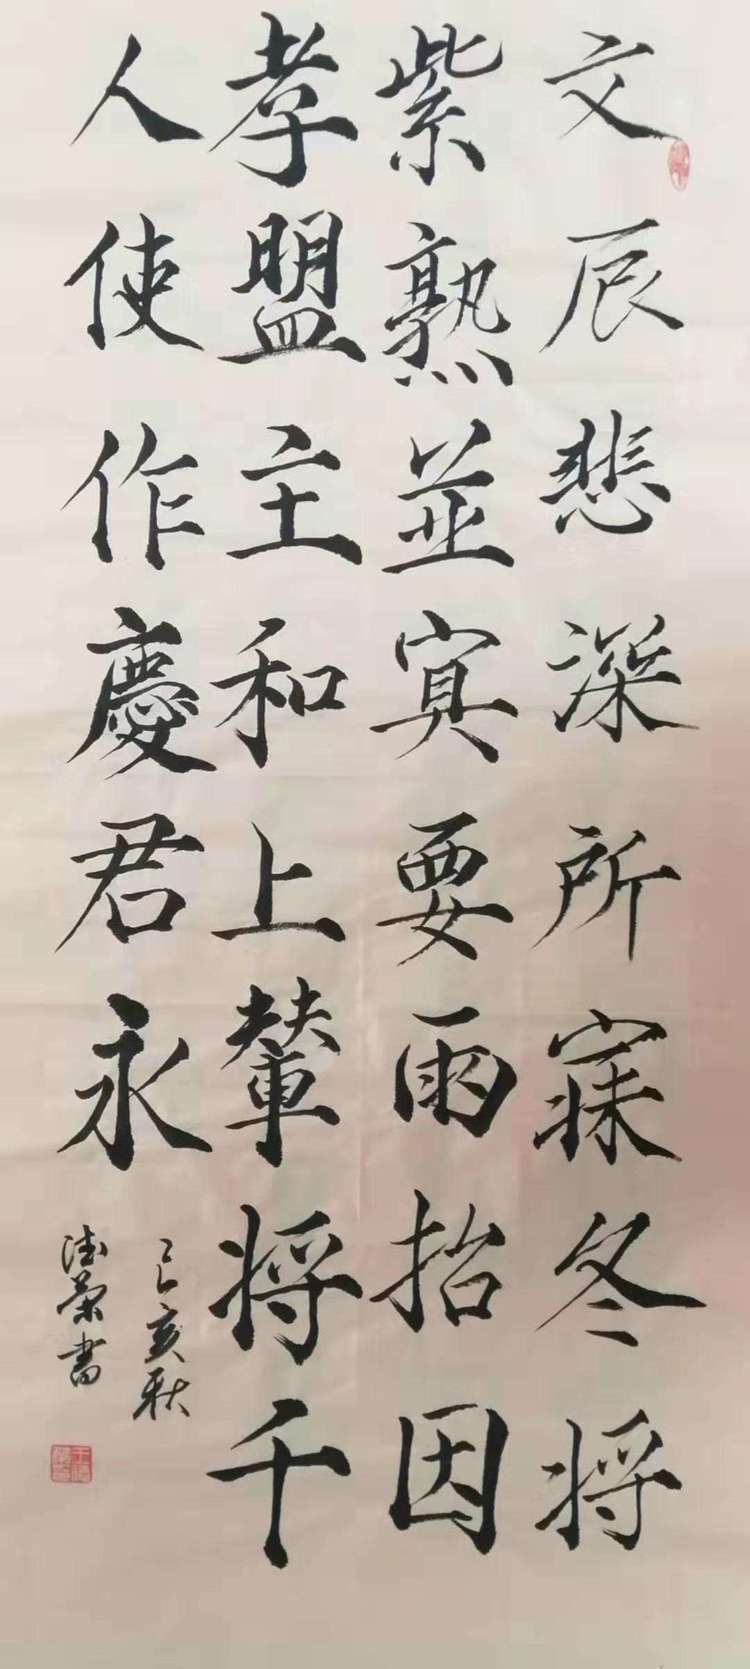 文辰悲深所寐冬将
紫熟並寘要雨抬因
孝盟主和上輦将千
人使作慶君永
己亥秋
德荣書